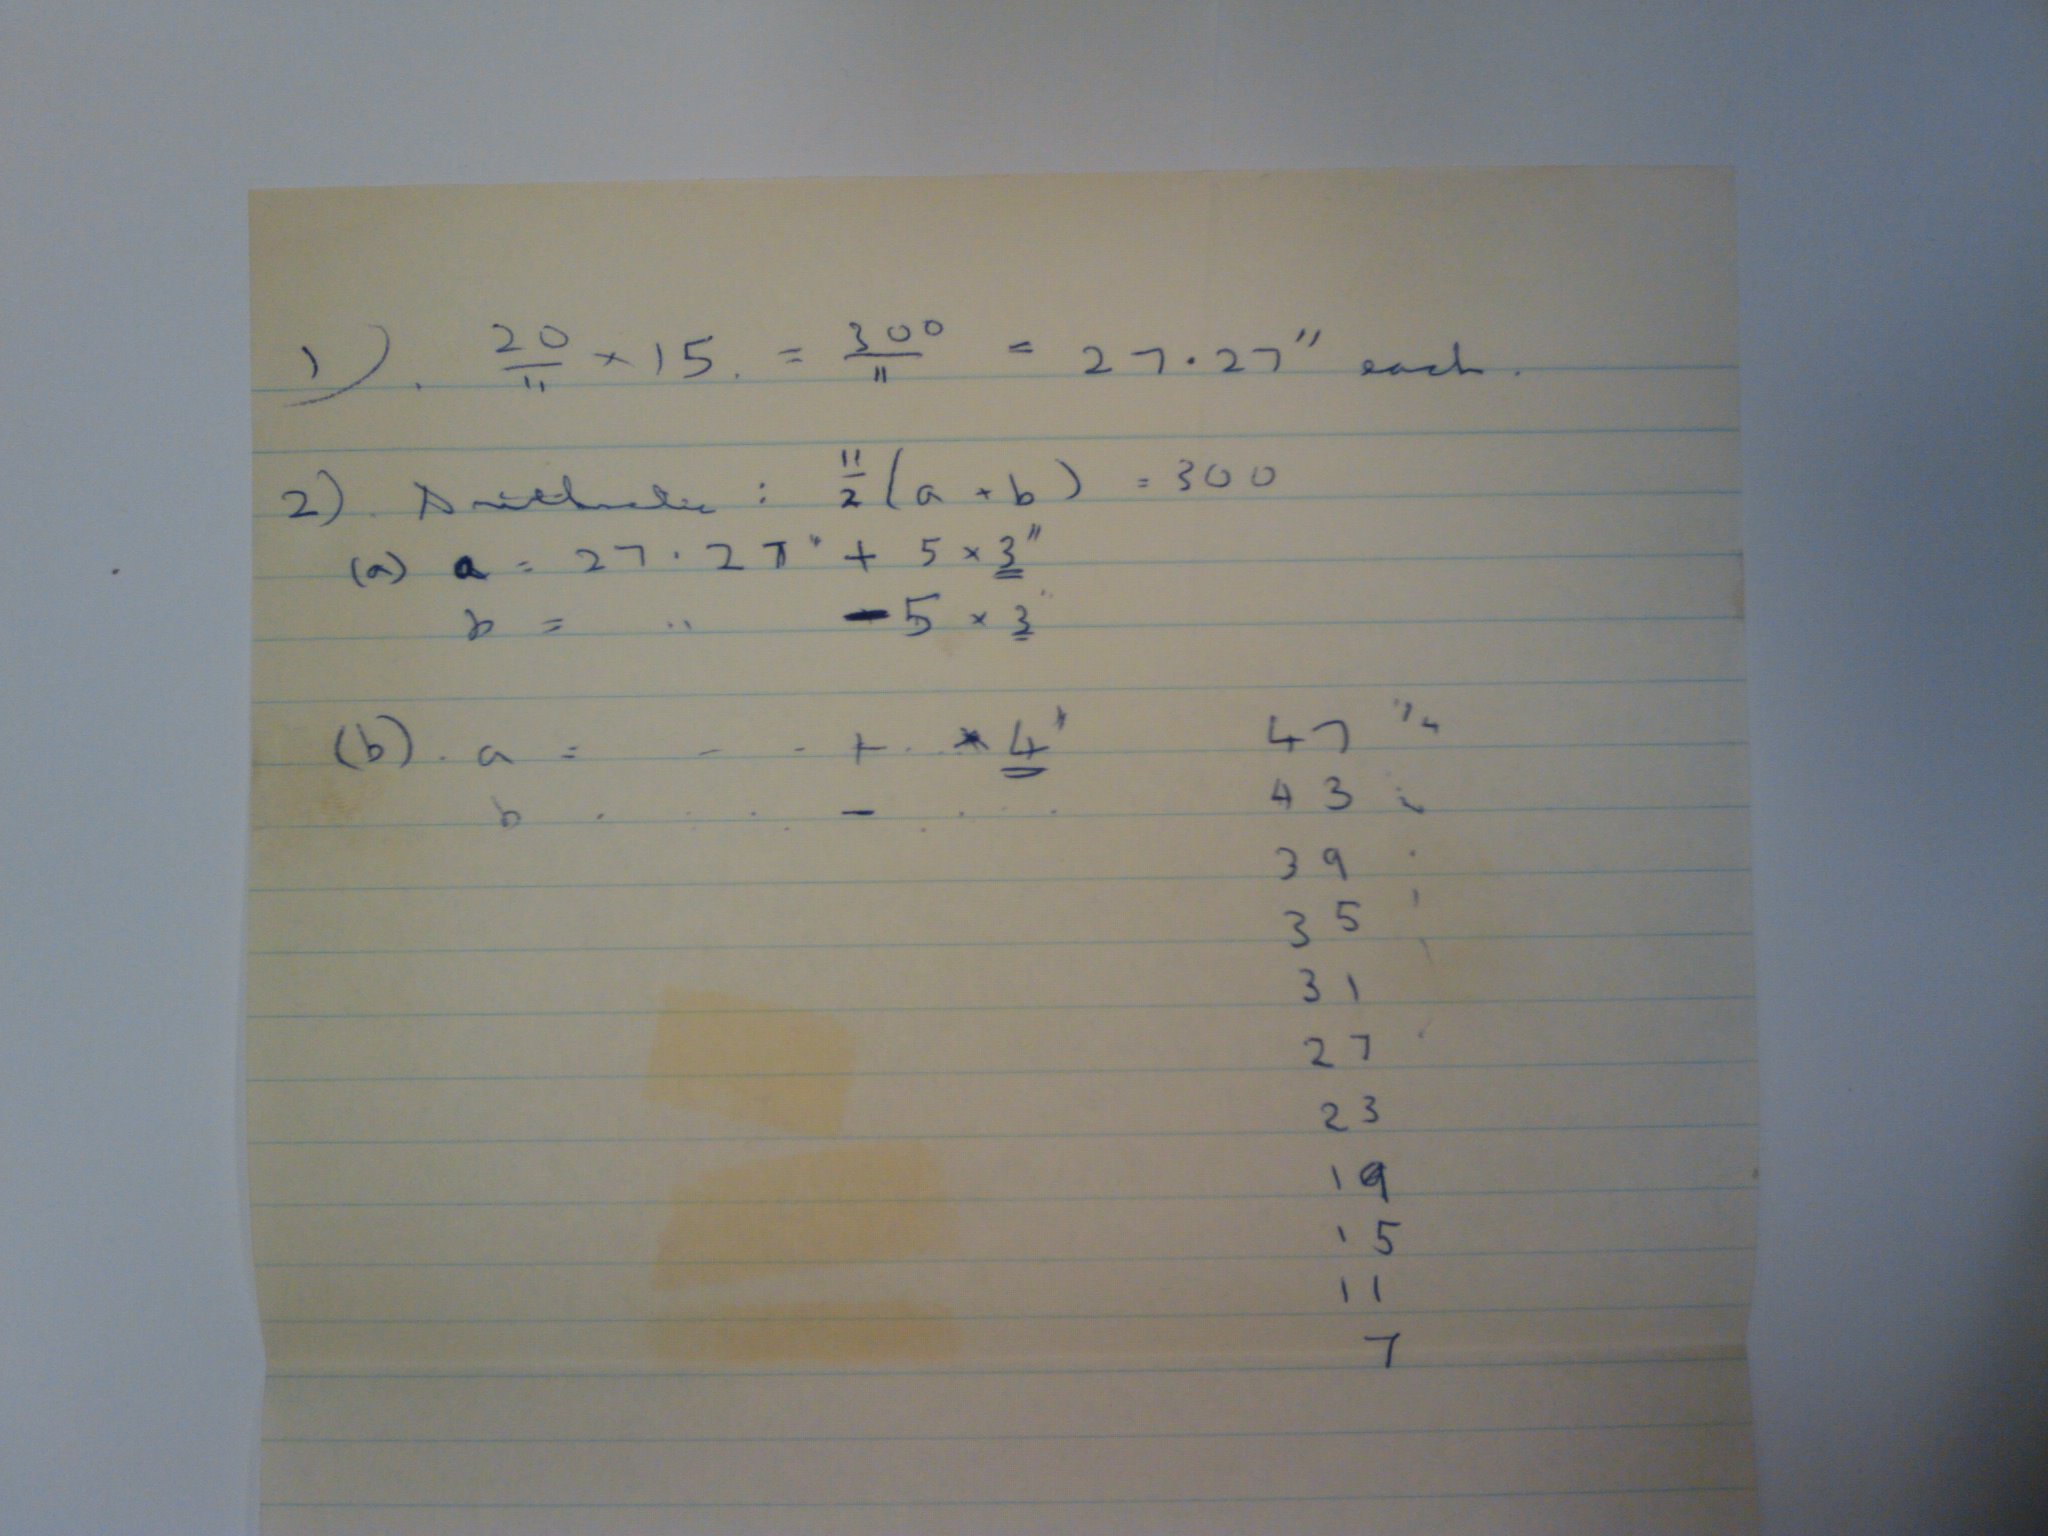 1). 20/11 × 15. = 300/11 = 27.27" each.
2). Arithmetic : 11/2 (a + b) = 300
(a) a = 27.27" + 5 × 3"
b = " - 5 × 3"
(b). a = - - + . × 4" 47 1/4
b . . . . - . . . 43 "
39 "
35 "
31
27 "
23
19
15
11
7